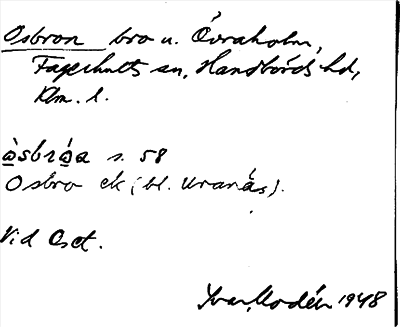 Osbron bro u. Övraholm,
Fagerhults sn, Handbörds hd,
Klm. l.
òsbróa s. 58
Osbro ek (bl. Uranäs).
Vid Oset.
Ivar Modéer 1948